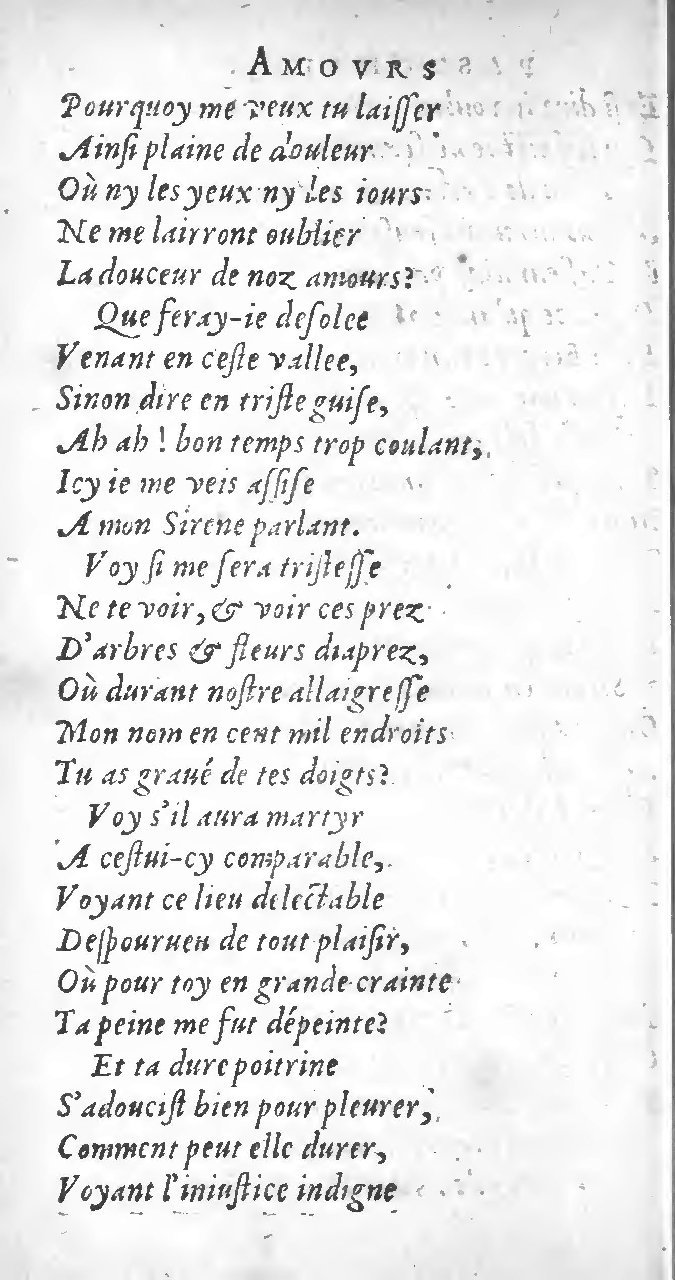 AMOVRS
Pourquoy me veux tu laiſſer
Ainſi plaine de douleur
Où ny les yeux ny les iours
Ne me lairront oublier
La douceur de noz amours?
Que feray-ie deſolee
Venant en ceſte vallee,
Sinon dire en triſte guiſe,
Ah ah ! bon temps trop coulant,
Icy ie me veis aſſiſe
A mon Sirene parlant.
Voy ſi me ſera triſteſſe
Ne te voir, & voir ces prez
D'arbres & fleurs diaprez,
Où durant noſtre allaigreſſe
Mon nom en cent mil endroits
Tu as graué de tes doigts?
Voy s'il aura martyr
A ceſtui-cy comparable,
Voyant ce lieu delectable
Deſpourueu de tout plaiſir,
Où pour toy en grande crainte
Ta peine me fut dépeinte?
Et ta dure poitrine
S'adouciſt bien pour pleurer,
Comment peut elle durer,
Voyant l'iniuſtice indigne